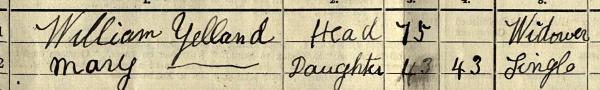 1 William Yelland Head 75 Widower
2 Mary Daughter 43 43 Single